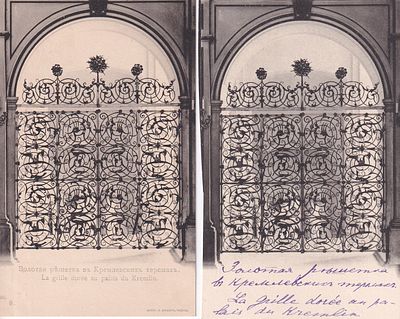 Золотая рѣшетка въ Кремлевскихъ теремахъ.
La grille dorée au palais du Kremlin.
Золотая рѣшетка
в Кремлевскихъ теремах
La Grille dorée au pa-
lais du Kremlin